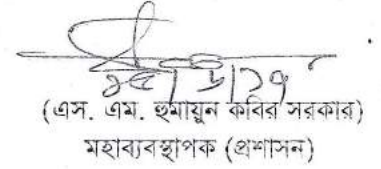 (এস. এম. হুমায়ুন কবির সরকার)
মহাব্যবস্থাপক (প্রশাসন)